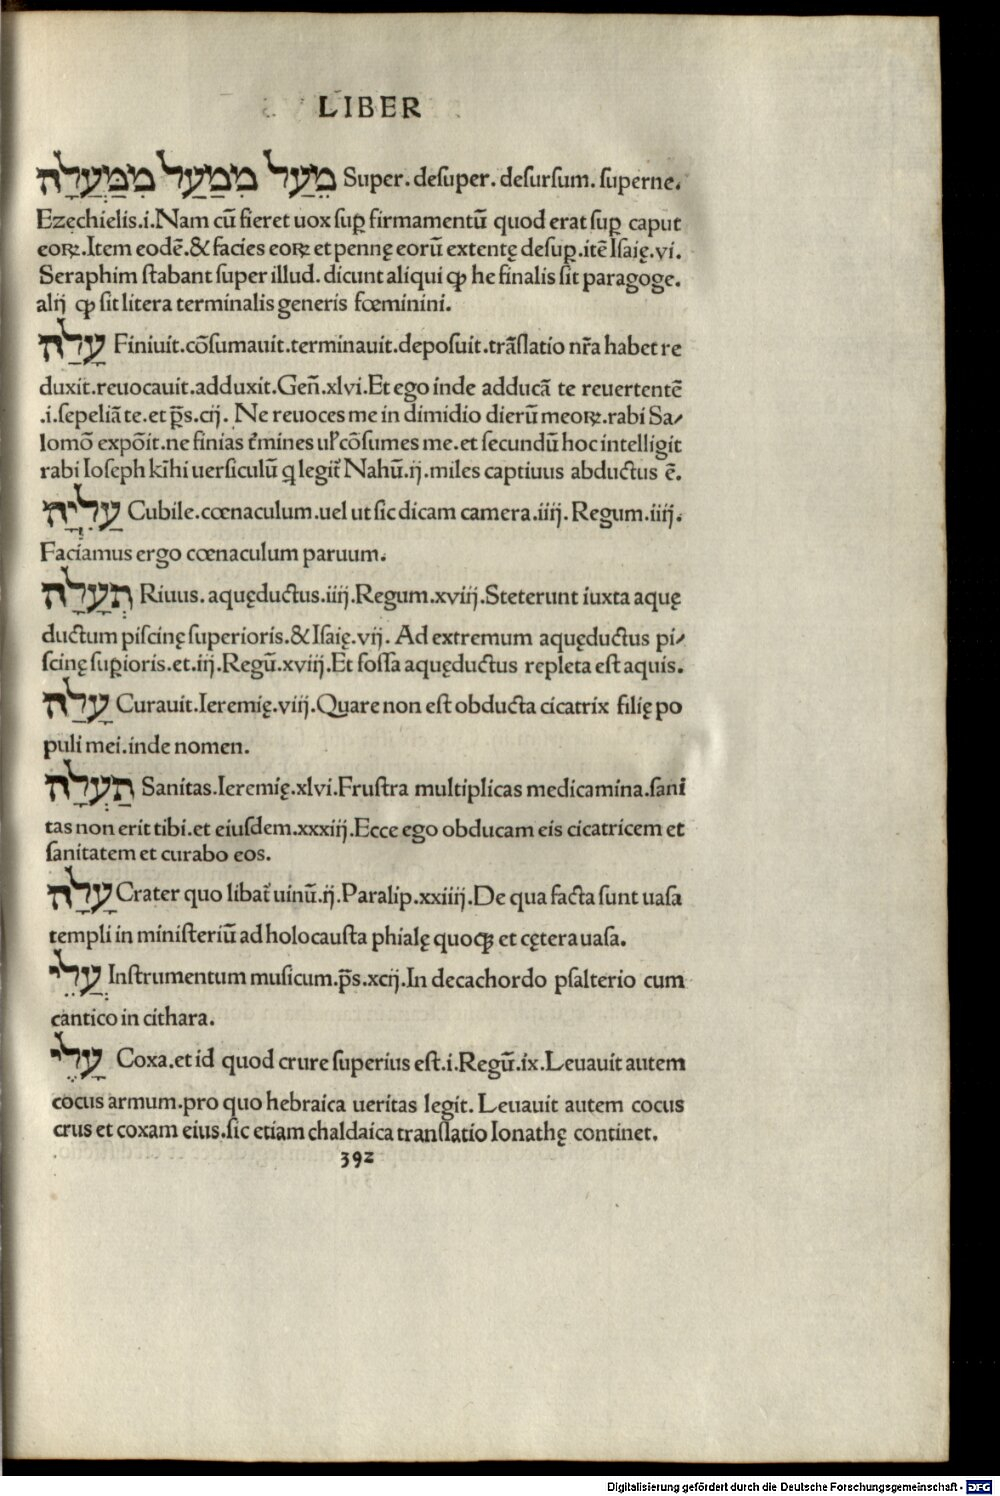 LIBER
מֵעַל מִמַּעַל מִמַּעֲלָה Super. desuper. desursum. superne.
Ezęchielis.i.Nam cũ fieret uox suꝑ firmamentũ quod erat suꝑ caput
eoꝝ.Item eodẽ.&facies eoꝝ et pennę eorũ extentę desuꝑ.itẽ Isaię.vi.
Seraphim stabant super illud. dicunt aliqui ꝙ he finalis sit paragoge.
alij ꝙ sit litera terminalis generis fœminini.
עָלָה Finiuit.cõsumauit.terminauit.deposuit.trãslatio nr̃a habet re
duxit.reuocauit.adduxit.Geñ.xlvi.Et ego inde adducã te reuertentẽ
.i.sepeliã te.et p̃s.cij. Ne reuoces me in dimidio dierũ meoꝝ.rabi Sa⸗
lomõ expõit.ne finias t̃mines ul̃ cõsumes me.et secundũ hoc intelligit
rabi Ioseph kĩhi uersiculũ q legit̃ Nahũ.ij.miles captiuus abductus ẽ.
עֲלִיָּה Cubile.cœnaculum.uel ut sic dicam camera.iiij. Regum.iiij.
Faciamus ergo cœnaculum paruum.
תְּעָלָה Riuus. aquęductus.iiij.Regum.xviij.Steterunt iuxta aquę
ductum piscinę superioris.&Isaię.vij. Ad extremum aquęductus pi⸗
scinę suꝑioris.et.iij.Regũ.xviij.Et fossa aquęductus repleta est aquis.
עָלָה Curauit.Ieremię.viij.Quare non est obducta cicatrix filię po
puli mei.inde nomen.
תַּעְלָה Sanitas.Ieremię.xlvi.Frustra multiplicas medicamina.sani
tas non erit tibi.et eiusdem.xxxiij.Ecce ego obducam eis cicatricem et
sanitatem et curabo eos.
עָלָה Crater quo libat̃ uinũ.ij.Paralip.xxiiij.De qua facta sunt uasa
templi in ministeriũ ad holocausta phialę quoqꝫ et cętera uasa.
עֲלֵי Instrumentum musicum.p̃s.xcij.In decachordo psalterio cum
cantico in cithara.
עָלֶי Coxa.et id quod crure superius est.i.Regũ.ix.Leuauit autem
cocus armum.pro quo hebraica ueritas legit. Leuauit autem cocus
crus et coxam eius.sic etiam chaldaica translatio Ionathę continet.
392
Digitalisierung gefördert durch die Deutsche Forschungsgemeinschaft - DFG